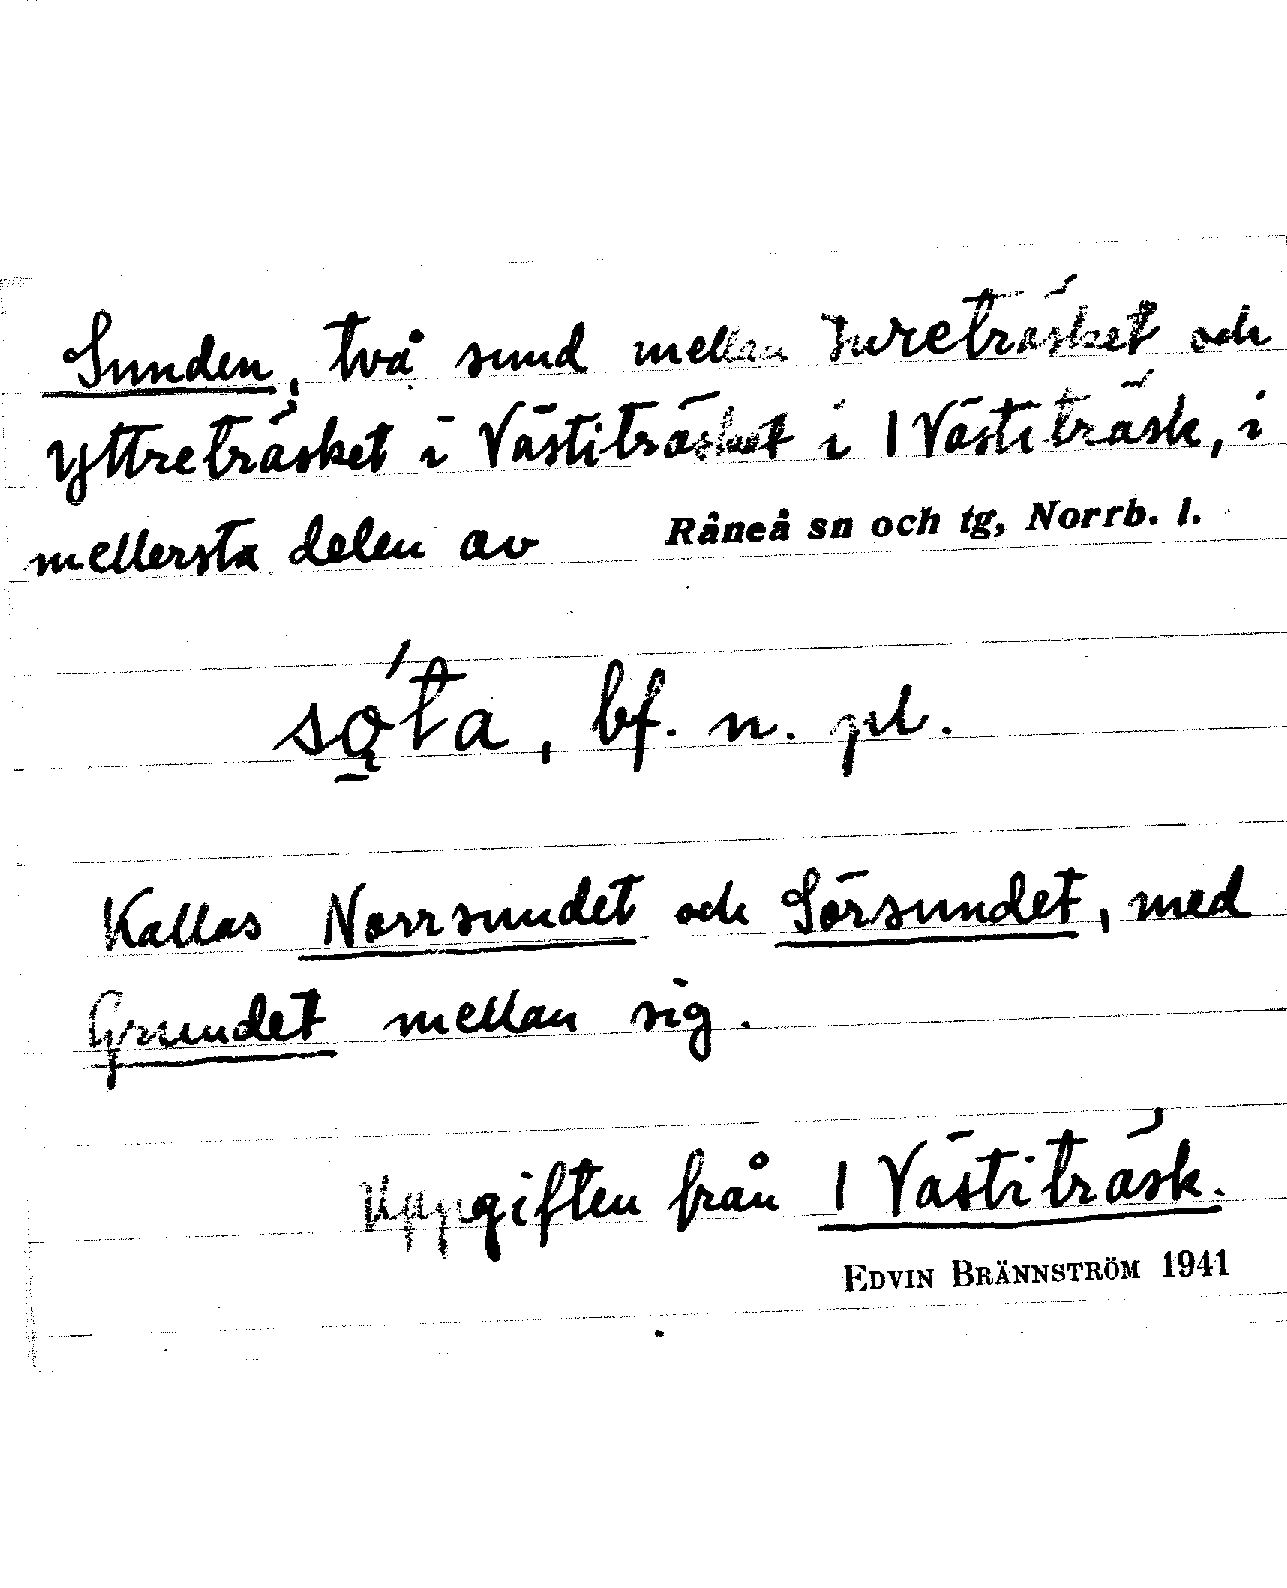 Sunden, två sund mellan Inreträsket och
Yttreträsket i Västiträsket i 1 Västiträsk, i
mellersta delen av Råneå sn och tg, Norrb. l.
sǫ̱́ta, bf. n. pl.
Kallas Norrsundet och Sörsundet, med
Grundet mellan sig.
Uppgiften från 1 Västiträsk.
EDVIN BRÄNNSTRÖM 1941